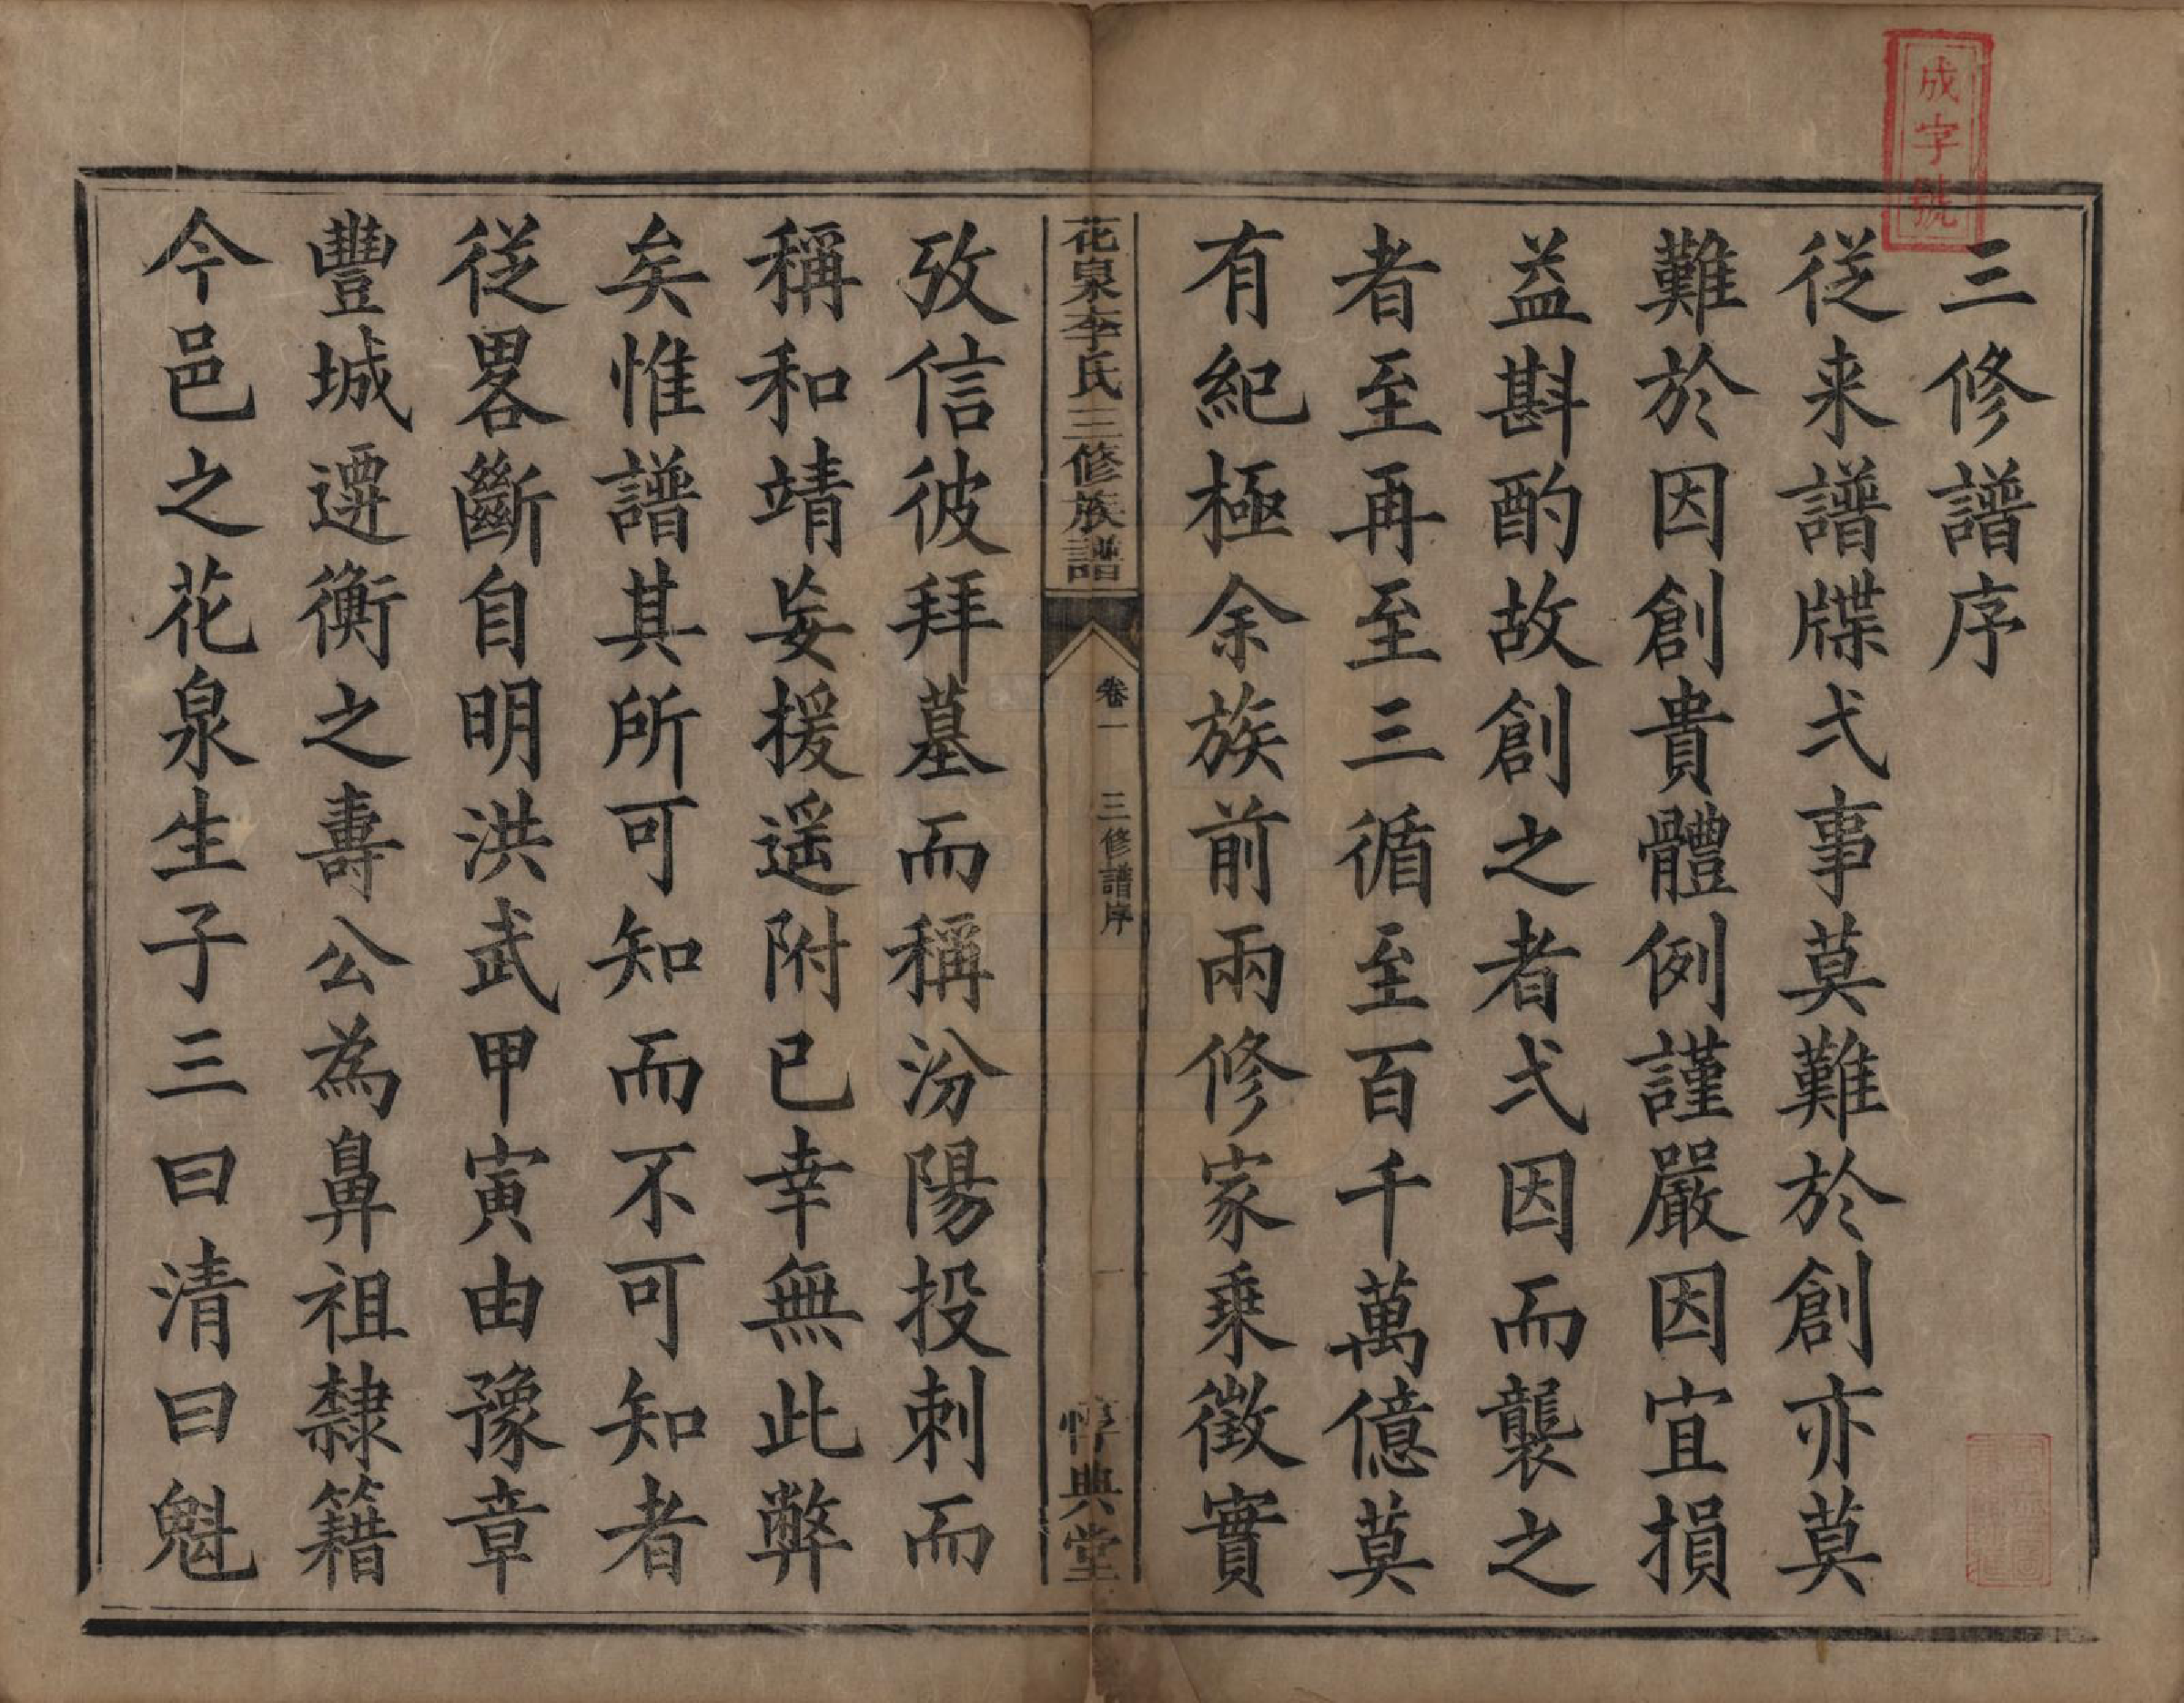 成字號
三修譜序
從来譜牒弍事莫難於創亦莫
難於因創貴體例謹嚴因宜損
益斟酌故創之者弍因而襲之
者至再至三循至百千萬億莫
有紀極余族前兩修家乗徵實
花泉李氏三修族譜
卷一
三修譜序
一
惇典堂
攷信彼拜墓而稱汾陽投刺而
稱和靖妄援遥附已幸無此弊
矣惟譜其所可知而不可知者
從畧斷自明洪武甲寅由豫章
豐城遷衡之壽公為鼻祖隸籍
今邑之花泉生子三曰清曰魁